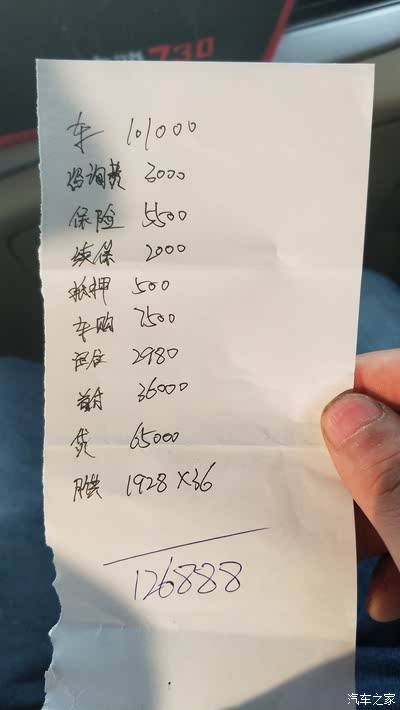 730
车 101000
咨询费 3000
保险 5500
续保 2000
抵押 500
车购 7500
2980
首付 36000
贷 65000
月供 1928×36
126888
汽车之家